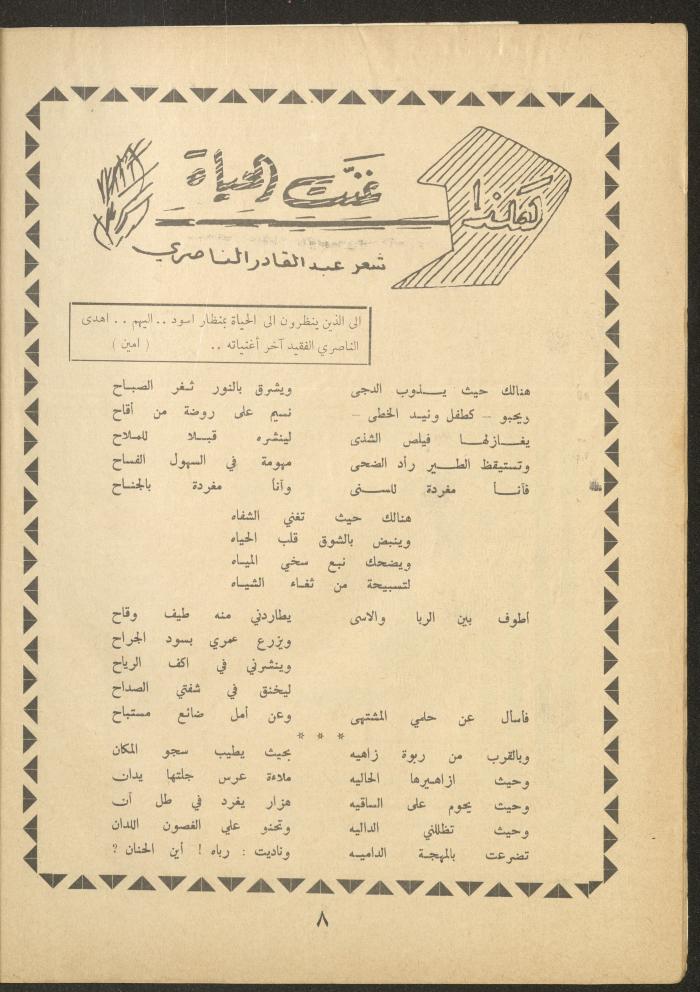 لهذا غنت الحياة
شعر عبد القادر الناصري
الى الذين ينظرون الى الحياة بمنظار اسود .. اليهم .. اهدى
الناصري الفقيد آخر أغنياته .. ( امين )
هنالك حيث يذوب الدجى ويشرق بالنور ثغر الصباح
ريحبو - كطفل ونيد الخطى - نسيم على روضة من أقاح
يغازلها فيلص الشذى لينشره قبلا للملاح
وتستيقظ الطير رأد الضحى مهومة في السهول الفساح
فآنا مغردة للسنى وآنا مغردة بالجناح
هنالك حيث تغني الشفاه
وينبض بالشوق قلب الحياه
ويضحك نبع سخي المياه
لتسبيحة من ثغاء الشياه
أطوف بين الربا والاسى يطاردني منه طيف وقاح
ويزرع عمري بسود الجراح
وينشرني في اكف الرياح
ليخنق في شفتي الصداح
فأسأل عن حلمي المشتهى وعن أمل ضائع مستباح
* * *
وبالقرب من ربوة زاهيه بحيث يطيب سجو المكان
وحيث ازاهيرها الحاليه ملاءة عرس جلتها يدان
وحيث يحوم على الساقيه هزار يغرد في ظل آن
وحيث تظللني الداليه وتحنو علي الغصون اللدان
تضرعت بالمهجة الداميه وناديت : رباه ! أين الحنان ?
٨